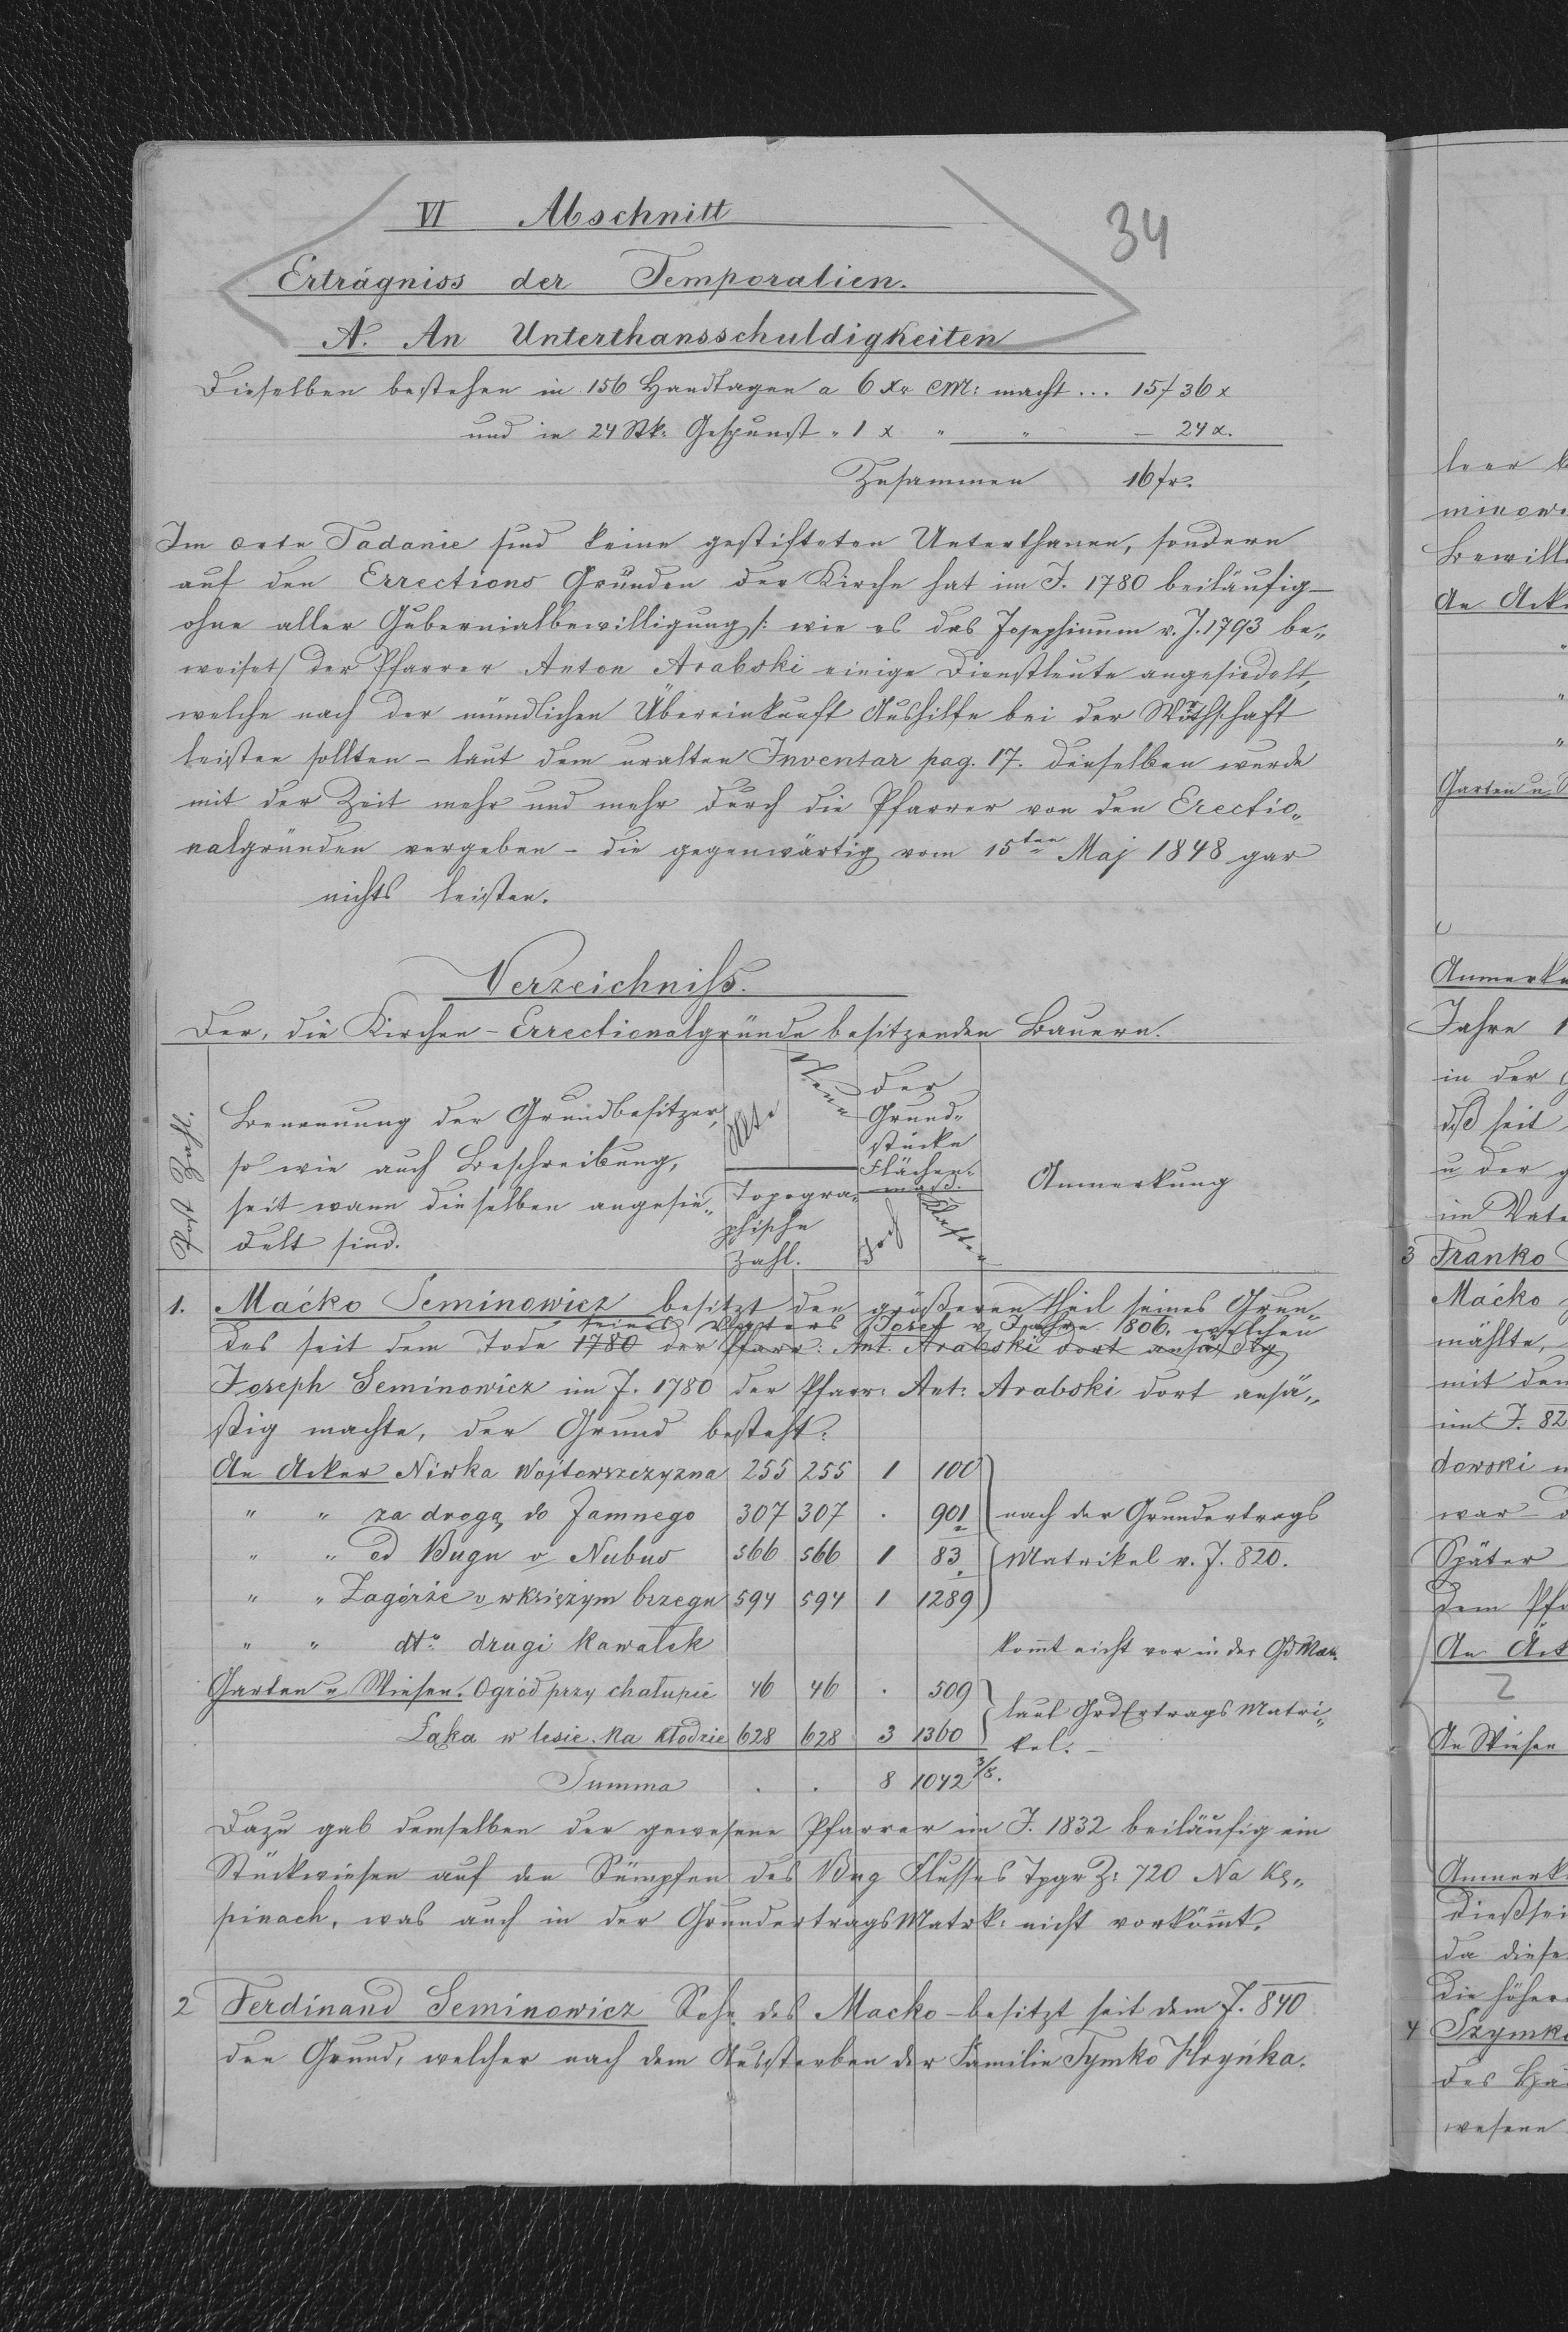 VI Abschnitt
34
Erträgniss der Temporalien.
A. An Unterthansschuldigkeiten
Dieselben bestehen in 156 Handtagen a 6 Xr CM: macht ... 15 f 36 x
und in 24 Stk: Gespunst " 1 x " " — 24 x.
Zusammen 16 fr.
Im Orte Tadanie sind keine gestifteten Unterthanen, sondern
auf den Errections Gründen der Kirche hat im J. 1780 beiläufig –
ohne aller Gubernialbewilligung /: wie es das Josephinum v. J. 1793 be„
weiset / der Pfarrer Anton Arabski einige Dienstleute angesiedelt,
welche nach der mündlichen Übereinkunft Aushilfe bei der Wirthschaft
leisten sollten – laut dem uralten Inventar pag. 17. dieselben wurde
mit der Zeit mehr und mehr durch die Pfarrer von den Erectio„
nalgründen vergeben – die gegenwärtig vom 15ten Maj 1848 gar
nichts leisten.
Verzeichniss.
Der, die Kirchen-Errectionalgründe besitzenden Bauern.
Post Zahl.
Benennung der Grundbesitzer,
so wie auch Beschreibung,
seit wann dieselben angesie„
delt sind.
Alte
Neue
Topogra„
phische
Zahl.
der
Grund„
stücke
Flächen„
maß.
Joch
Klafter
Anmerkung
1. Maćko Seminowicz besitzt den größeren Theil seines Grun
seines Vaters Josef v. Jahre 1806. welchen
des seit dem Tode 1780 der Pfarr: Ant. Arabski dort ansäßig
Joseph Seminowicz im J. 1780 der Pfarr: Ant: Arabski dort ansä„
ßig machte, der Grund besteht:
An Acker Niwka Wojtowszczyzna 255 255 1 100
" " za drogą do Jamnego 307 307 . 901 nach der Grundertrags
" " od Bugu v Nubus 566 566 1 83 Matrikel v. J. 820.
" " Zagórże v w księżym brzegu 594 594 1 1289
" " dto drugi kawałek kom̄t nicht vor in der Gd Matr.
Garten u Wiesen. Ogród przy chałupie 46 46 . 509
laut GrdErtrags Matri„
Łąka w lesie. Na Kłodzie 628 628 3 1360 kel. –
Summa . . 8 1042 3/8.
Dazu gab demselben der gewesene Pfarrer im J. 1832 beiläufig ein
Stückwiesen auf den Sümpfen des Bug Flusses Tpgr Z: 720 Na Kę„
pinach, was auch in der GrundertragsMatrk: nicht vorköm̄t.
2 Ferdinand Seminowicz Sohn des Macko – besitzt seit dem J. 840
den Grund, welcher nach dem Aussterben der Familie Tymko Hryńka.
leer
minow
Bewill
An Ack
"
"
"
Garten u.
Anmerk
Jahre 1
in der
dß seit
u der g
im Vate
3 Franko
Maćko
mählte,
mit den
im J. 82
dowski
war
Später
dem Pfa
An Ack
An Wiesen
Anmerk:
Dießsei
da diese
die höher
4 Szymk
des Ha
wesene